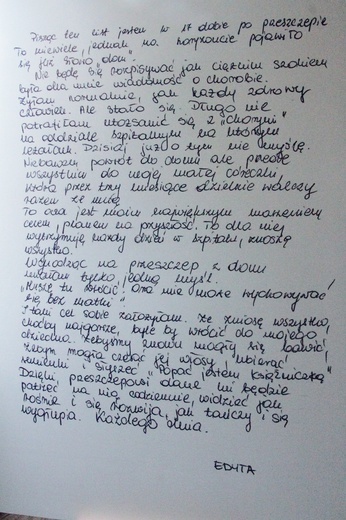 Pisząc ten list jestem w 17 dobie po przeszczepie
To niewiele, jednak na horyzoncie pojawiło
się już słowo „dom".
Nie będę się rozpisywać jak ciężkim
była dla mnie wiadomość o chorobie.
Żyłam normalnie, jak każdy zdrowy
człowiek. Ale stało się. Długo nie
potrafiłam utożsamić się z „chorymi"
na oddziale szpitalnym na którym
leżałam. Dzisiaj już o tym nie myślę.
Niebawem powrót do domu ale przede
wszystkim do mojej małej córeczki,
która przez trzy miesiące dzielnie walczy
razem ze mną
To ona jest moim największym marzeniem
celem, planem na przyszłość. To dla niej
wytrzymuję każdy dzień w szpitalu, znoszę
wszystko.
na przeszczep z domu
miałam tylko jedną myśl.
„Muszę tu wrócić! Ona nie może wychowywać
się bez matki".
I taki cel sobie założyłam. Że zniosę wszystko,
choćby najgorsze, byle by wrócić do mojego
dziecka. Żebyśmy znowu mogły się bawić,
żebym mogła czesać jej włosy, ubierać
sukienki i słyszeć "Popać jestem księżniczką"
Dzięki przeszczepowi dane mi będzie
patrzeć na nią codziennie, widzieć jak
rośnie i się rozwija, jak tańczy i się
wygłupia. Każdego dnia.
EDYTA